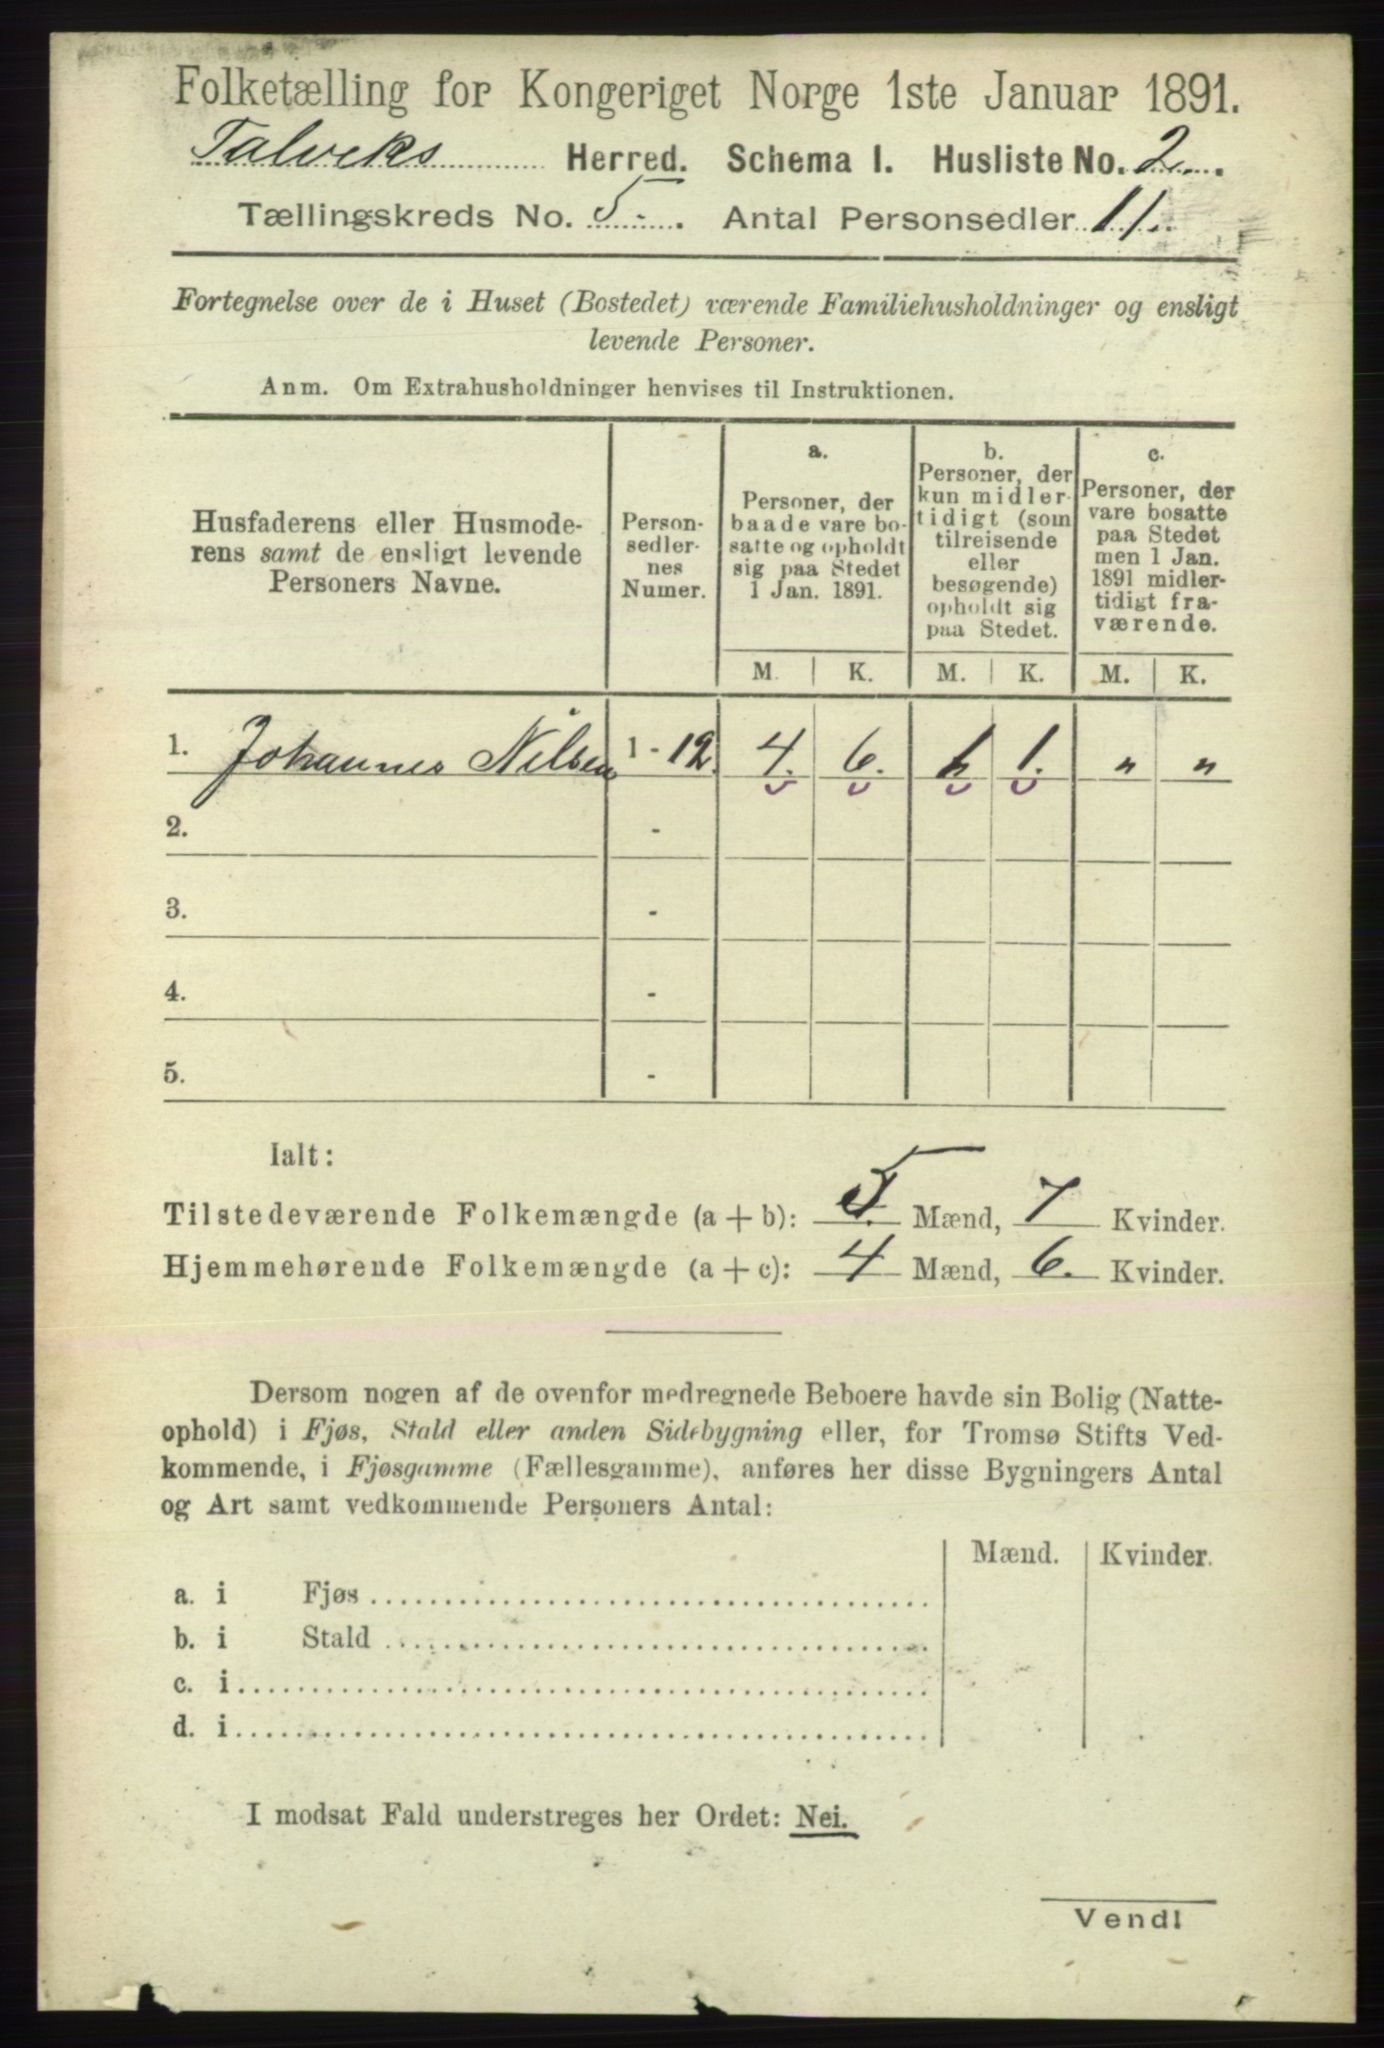 Folketælling for Kongeriget Norge 1ste Januar 1891.
Talviks Herred. Schema I. Husliste No. 2.
Tællingskreds No. 5. Antal Personsedler 11.
Fortegnelse over de i Huset (Bostedet) værende Familiehusholdninger og ensligt
levende Personer.
Anm. Om Extrahusholdninger henvises til Instruktionen.
Husfaderens eller Husmode-
rens samt de ensligt levende
Personers Navne.
Person-
sedler-
nes
Numer.
a.
Personer, der
baade vare bo-
satte og opholdt
sig paa Stedet
1 Jan. 1891.
b.
Personer, der
kun midler-
tidigt (som
tilreisende
eller
besøgende)
opholdt sig
paa Stedet.
c.
Personer, der
vare bosatte
paa Stedet
men 1 Jan.
1891 midler-
tidigt fra-
værende.
M. K. M. K. M. K.
1. Johannes Nilsen 1 - 12 4. 6. 1 1. „ „
2. -
3. -
4. -
5. -
Ialt:
Tilstedeværende Folkemængde (a + b): 5. Mænd, 7 Kvinder.
Hjemmehørende Folkemængde (a + c): 4 Mænd, 6. Kvinder.
Dersom nogen af de ovenfor medregnede Beboere havde sin Bolig (Natte-
ophold) i Fjøs, Stald eller anden Sidebygning eller, for Tromsø Stifts Ved-
kommende, i Fjøsgamme (Fællesgamme), anføres her disse Bygningers Antal
og Art samt vedkommende Personers Antal:
Mænd. Kvinder.
a. i Fjøs
b. i Stald
c. i
d. i
I modsat Fald understreges her Ordet: Nei.
Vend!